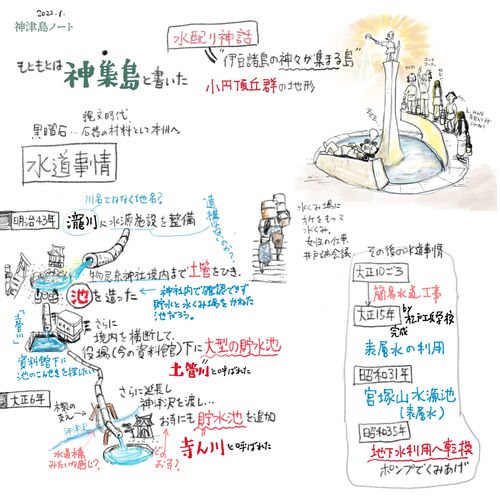 2022.1.
神津島ノート
もともとは神集島と書いた
水配り神話
"伊豆諸島の神々が集まる島"
小円頂丘群の地形
縄文時代
黒曜石…石器の材料として本州へ
水道事情
川名ではなく地名?
明治43年
瀧川に水源施設を整備
遺構はないのか?
物忌奈神社境内まで土管をひき、
池を造った
←神社内で確認できず
貯水と水くみ場をかねた
池だろう。
「土管川」
さらに
境内を横断して、
役場(今の資料館)下に大型の貯水池
土管川と呼ばれた
資料館下に
池のこんせきを探したい
大正6年
さらに延長し
神津沢を渡し…
お寺にも貯水池を追加
寺ん川と呼ばれた
木製の支え
神津沢
水道橋
みたいな感じ?
どのお寺?
水くみ場に
列をなして
水くみ。
女性の仕事
井戸端会議
その後の水道事情
大正10ごろ
簡易水道工事
大正15年
完成
表層水の利用
昭和31年
宮塚山水源池
(表層水)
昭和35年
地下水利用へ転換
ポンプでくみあげ